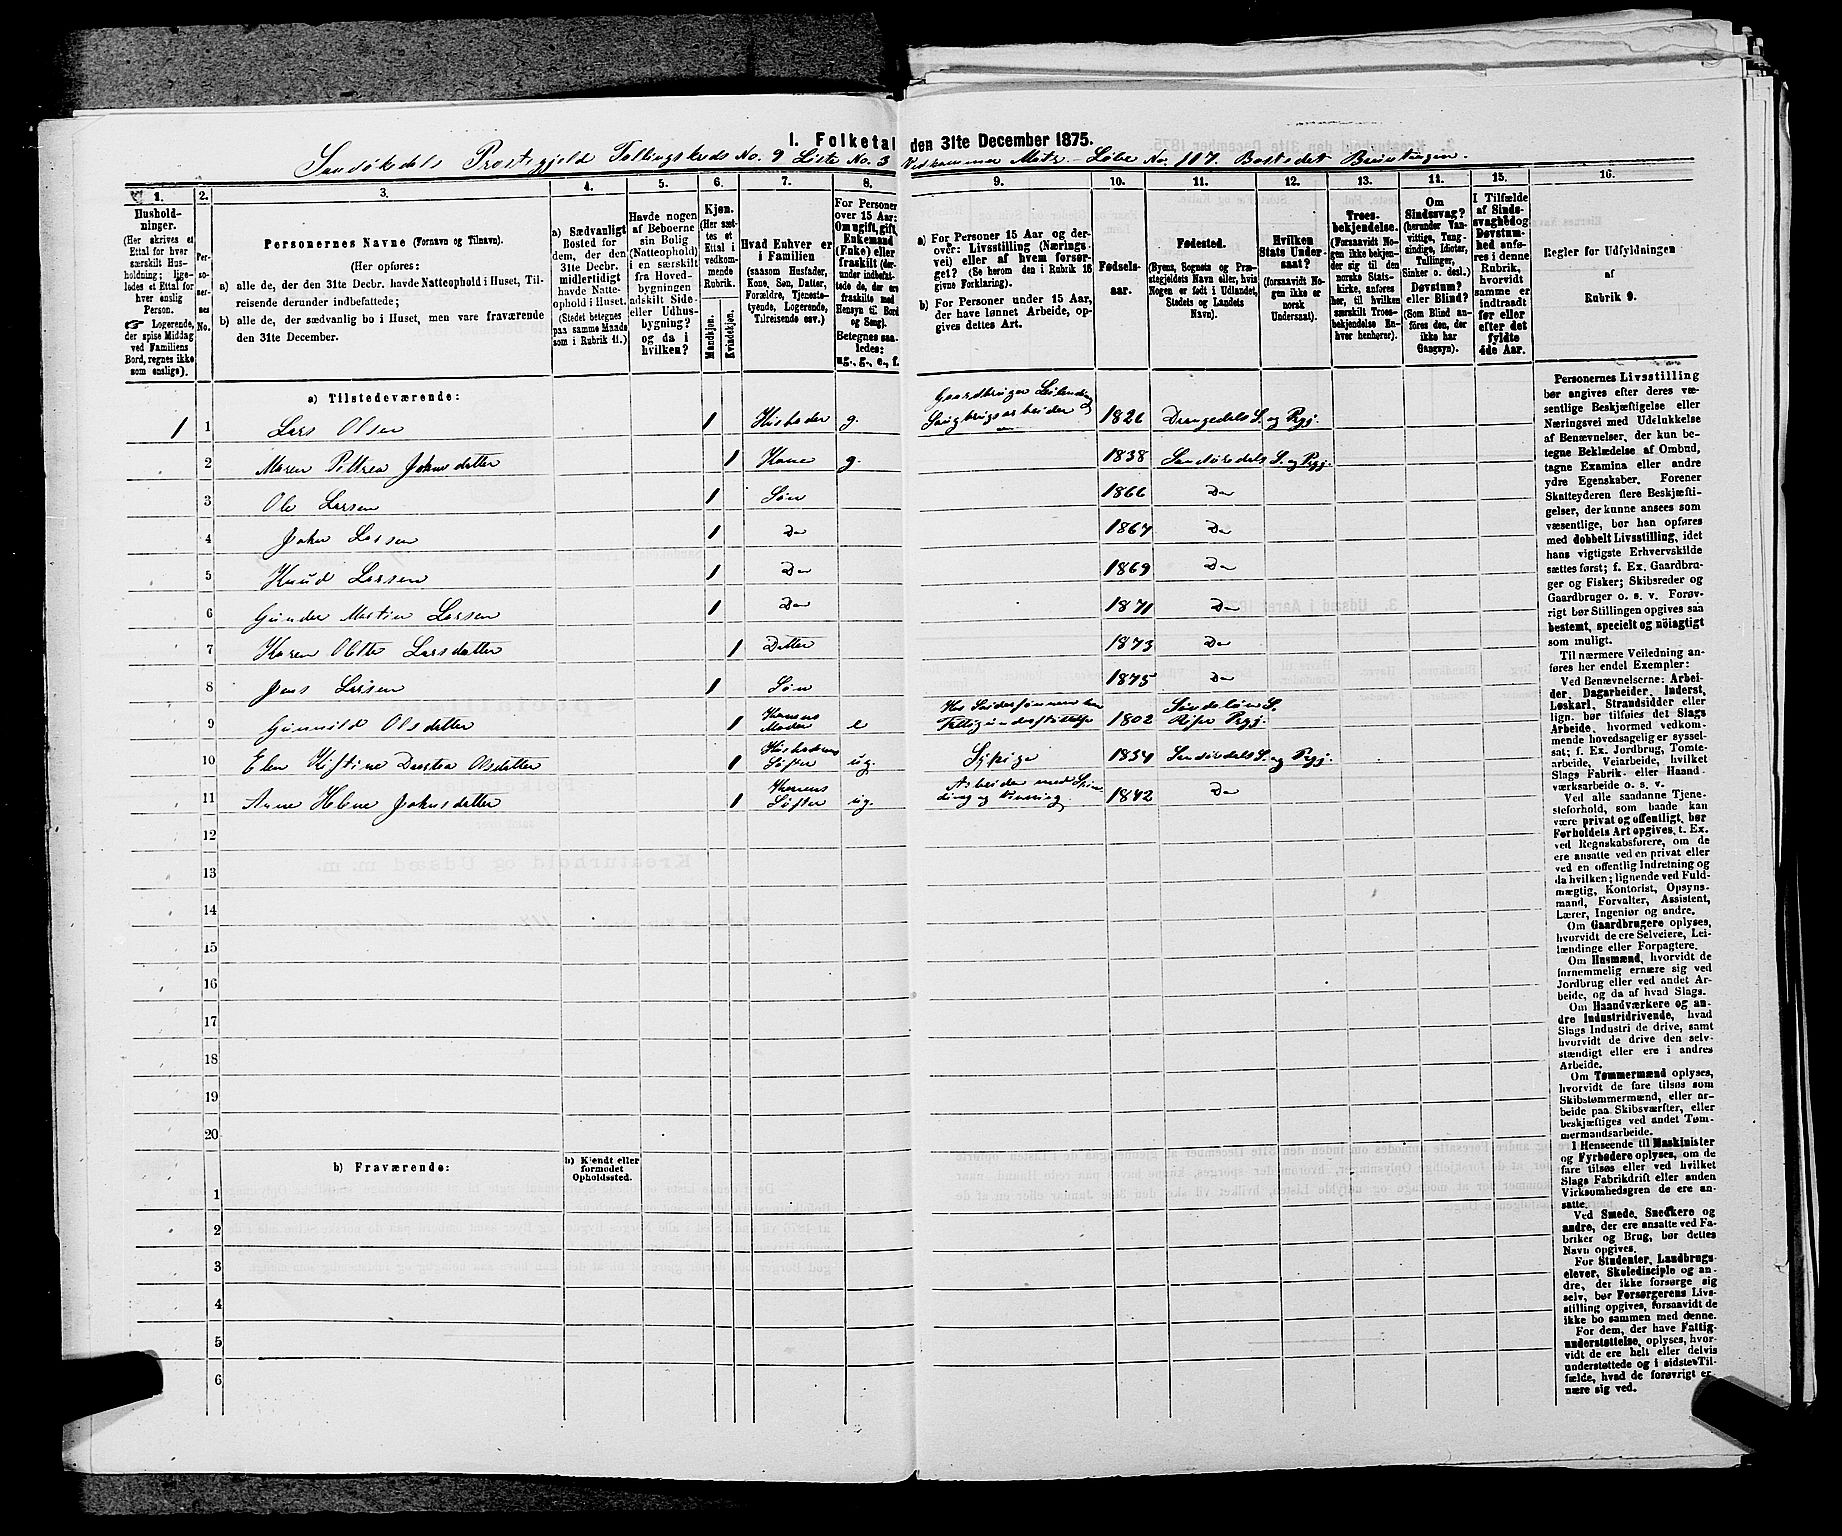 1. Folketal den 31te December 1875.
Sandökedals Prestegjeld Tællingskreds No. 9 Liste No. 3 Vedkommer Matr.-Löbe No. 117. Bostedet
1. 2. 3. 4. 5. 6. 7. 8. 9. 10. 11. 12. 13. 14. 15. 16.
Hushold-
ninger.
(Her skrives et
Ettal for hver
særskilt Hus-
holdning; lige-
ledes et Ettal for
hver enslig
Person.
☞ Logerende,
der spise Middag
ved Familiens
Bord, regnes ikke
som enslige).
Per-
so-
ner-
nes
No.
Personernes Navne (Fornavn og Tilnavn).
(Her opføres:
a) alle de, der den 31te Decbr. havde Natteophold i Huset, Til-
reisende derunder indbefattede;
b) alle de, der sædvanlig bo i Huset, men vare fraværende
den 31te December.
a) Sædvanligt
Bosted for
dem, der den
31te Decbr.
midlertidigt
havde Natte-
ophold i Huset.
(Stedet betegnes
paa samme Maade
som i Rubrik 11.)
Havde nogen
af Beboerne
sin Bolig
(Natteophold)
i en særskilt
fra Hoved-
bygningen
adskilt Side-
eller Udhus-
bygning? og da i
hvilken?
Kjøn.
(Her sæt-
tes et
Ettal i
vedkom-
mende
Rubrik.
Mandkjøn.
Kvindekjøn.
Hvad Enhver er
i Familien
(saasom Husfader,
Kone, Søn, Datter,
Forældre, Tjeneste-
tyende, Logerende,
Tilreisende osv.)
For Personer
over 15 Aar:
Om ugift, gift,
Enkemand
(Enke) eller
fraskilt (der-
under indbefat-
tede de, der ere
fraskilte med
Hensyn til Bord
og Seng).
Betegnes saa-
ledes:
ug., g., e., f.
a) For Personer 15 Aar og der-
over: Livsstilling (Nærings-
vei) eller af hvem forsør-
get? (Se herom den i Rubrik 16
givne Forklaring).
b) For Personer under 15 Aar,
der have lønnet Arbeide, op-
gives dettes Art.
Fødsels-
aar.
Fødested.
(Byens, Sognets og Præ-
stegjeldets Navn eller, hvis
Nogen er født i Udlandet,
Stedets og Landets
Navn).
Hvilken
Stats Under-
saat?
(forsaavidt No-
gen ikke er
norsk
Undersaat).
Troes-
bekjendelse.
(Forsaavidt No-
gen ikke bekjen-
der sig til den
norske Stats-
kirke, anføres
her, til hvilken
særskilt Troes-
bekjendelse En-
hver henhører).
Om
Sindssvag?
(herunder Van-
vittige, Tung-
sindige, Idioter,
Tullinger,
Sinker o. desl.)
Døvstum?
eller Blind?
(Som Blind an-
føres den, der
ikke har
Gangsyn).
I Tilfælde
af Sinds-
svaghed og
Døvstum-
hed anfø-
res i denne
Rubrik,
hvorvidt
samme er
indtraadt
før eller
efter det
fyldte
4de Aar.
Regler for Udfyldningen
af
Rubrik 9.
a) Tilstedeværende:
1 1 Lars Olsen 1 Husfader g. Gaardbruger Leilending Saugbrugsarbeider 1826 Drangedals S. og Pgj.
2 Maren Petrea Johnsdatter 1 Kone g. 1838 Sandøkedals S. og Pgj.
3 Ole Larsen 1 Søn 1866 Do
4 John Larsen 1 Do 1867 Do
5 Knud Larsen 1 Do 1869 Do
6 Gunder Martin Larsen 1 Do 1871 Do
7 Karen Larsdatter 1 Datter 1873 Do
8 Jens Larsen 1 Søn 1875 Do
9 Gunnild Olsdatter 1 Konens Moder e 1802 Pgj.
10 Elen Kistine Olsdatter 1 Husfaderens Søster ug. Sypige 1854 Sandøkedals S. og Pgj.
11 Anne Helene Johnsdatter 1 Konens Søster ug. Arbeider med Spinding og 1842 Do
12
13
14
15
16
17
18
19
20
b) Fraværende:
b) Kjendt eller
formodet
Opholdssted.
1
2
3
4
5
6
Personernes Livsstilling
bør angives efter deres væ-
sentlige Beskjæftigelse eller
Næringsvei med Udelukkelse
af Benævnelser, der kun be-
tegne Beklædelse af Ombud,
tagne Examina eller andre
ydre Egenskaber. Forener
Skatteyderen flere Beskjæfti-
gelser, der kunne ansees som
væsentlige, bør han opføres
med dobbelt Livsstilling, idet
hans vigtigste Erhvervskilde
sættes først; f. Ex. Gaardbru-
ger og Fisker; Skibsreder og
Gaardbruger o. s. v. Forøv-
rigt bør Stillingen opgives saa
bestemt, specielt og nöiagtigt
som muligt.
Til nærmere Veiledning an-
føres her endel Exempler:
Ved Benævnelserne: Arbei-
der, Dagarbeider, Inderst,
Løskarl, Strandsidder eller
lign. bør tilføies det Slags
Arbeide, hvormed vedkom-
mende hovedsagelig er syssel-
sat; f. Ex. Jordbrug, Tomte-
arbeide, Veiarbeide, hvilket
Slags Fabrik- eller Haand-
værksarbeide o. s. v.
Ved alle saadanne Tjene-
steforhold, som baade kan
være privat og offentligt, bør
Forholdets Art opgives, t. Ex.
ved Regnskabsførere, om de
ere ansatte ved en privat eller
ved en offentlig Indretning og
da hvilken; lignende ved Fuld-
mægtig, Kontorist, Opsyns-
mand, Forvalter, Assistent,
Lærer, Ingeniør og andre.
Om Gaardbrugere oplyses,
hvorvidt de ere Selveiere, Lei-
lændinge eller Forpagtere.
Om Husmænd, hvorvidt de
fornemmelig ernære sig ved
Jordbrug eller ved andet Ar-
beide, og da af hvad Slags.
Om Haandværkere og an-
dre Industridrivende, hvad
Slags Industri de drive, samt
hvorvidt de drive den selv-
stændigt eller ere i andres
Arbeide.
Om Tømmermænd oplyses,
hvorvidt de fare tilsøs som
Skibstømmermænd, eller ar-
beide paa Skibsværfter, eller
beskjæftiges ved andet Tøm-
mermandsarbeide.
I Henseende til Maskinister
og Fyrbødere oplyses, om de
fare tilsøs eller ved hvilket
Slags Fabrikdrift eller anden
Virksomhedsgren de ere an-
satte.
Ved Smede, Snedkere og
andre, der ere ansatte ved Fa-
briker og Brug, bør dettes
Navn opgives.
For Studenter, Landbrugs-
elever, Skoledisciple og an-
dre, der ikke forsørge sig
selv, bør Forsørgerens Livs-
stilling opgives, forsaavidt de
ikke bo sammen med denne.
For dem, der have Fattig-
understøttelse, oplyses, hvor-
vidt de ere helt eller delvis
understøttede og i sidste Til-
fælde, hvad de forøvrigt er-
nære sig ved.